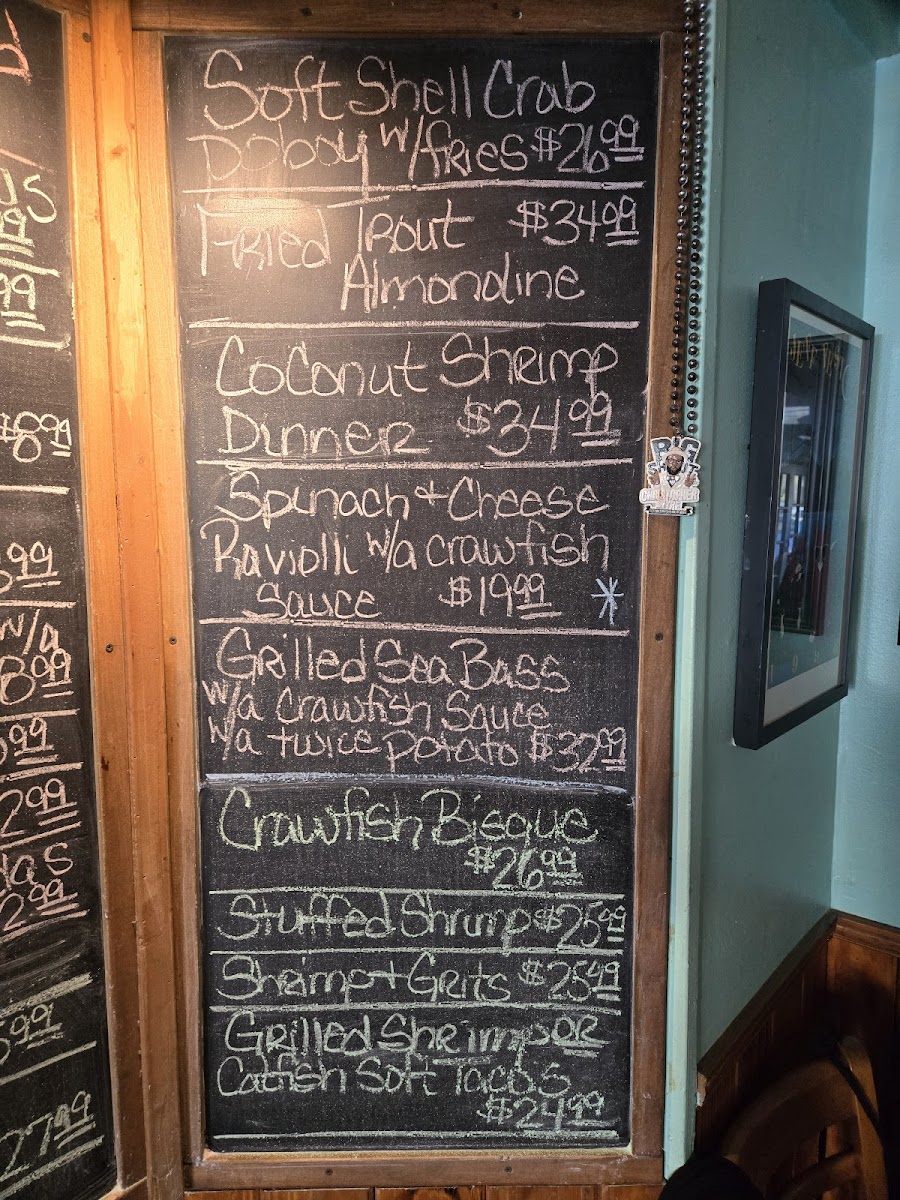 Soft Shell Crab
Poboy w/fries $26.99
Fried Trout $34.99
Almondine
Coconut Shrimp
Dinner $34.99
Spinach + Cheese
Raviolli w/a crawfish
Sauce $19.99 *
Grilled Sea Bass
w/a Crawfish Sauce
w/a twice potato $32.99
Crawfish Bisque
$26.99
Stuffed Shrimp $25.99
Shrimp + Grits $25.49
Grilled Shrimp OR
Catfish Soft Tacos
$24.99
$8.99
w/a
8.99
2.99
2.99
27.99